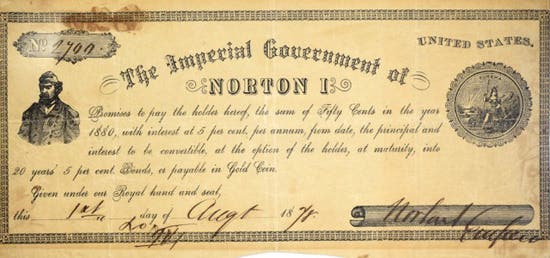 No. 2700.
UNITED STATES.
The Imperial Government of
NORTON I.
Promises to pay the holder hereof, the sum of Fifty Cents in the year
1880, with interest at 5 per cent. per annum, from date, the principal and
interest to be convertible, at the option of the holder, at maturity, into
20 years' 5 per cent. Bonds, or payable in Gold Coin.
Given under our Royal hand and seal,
this 1st day of Augt 1878
Norton I